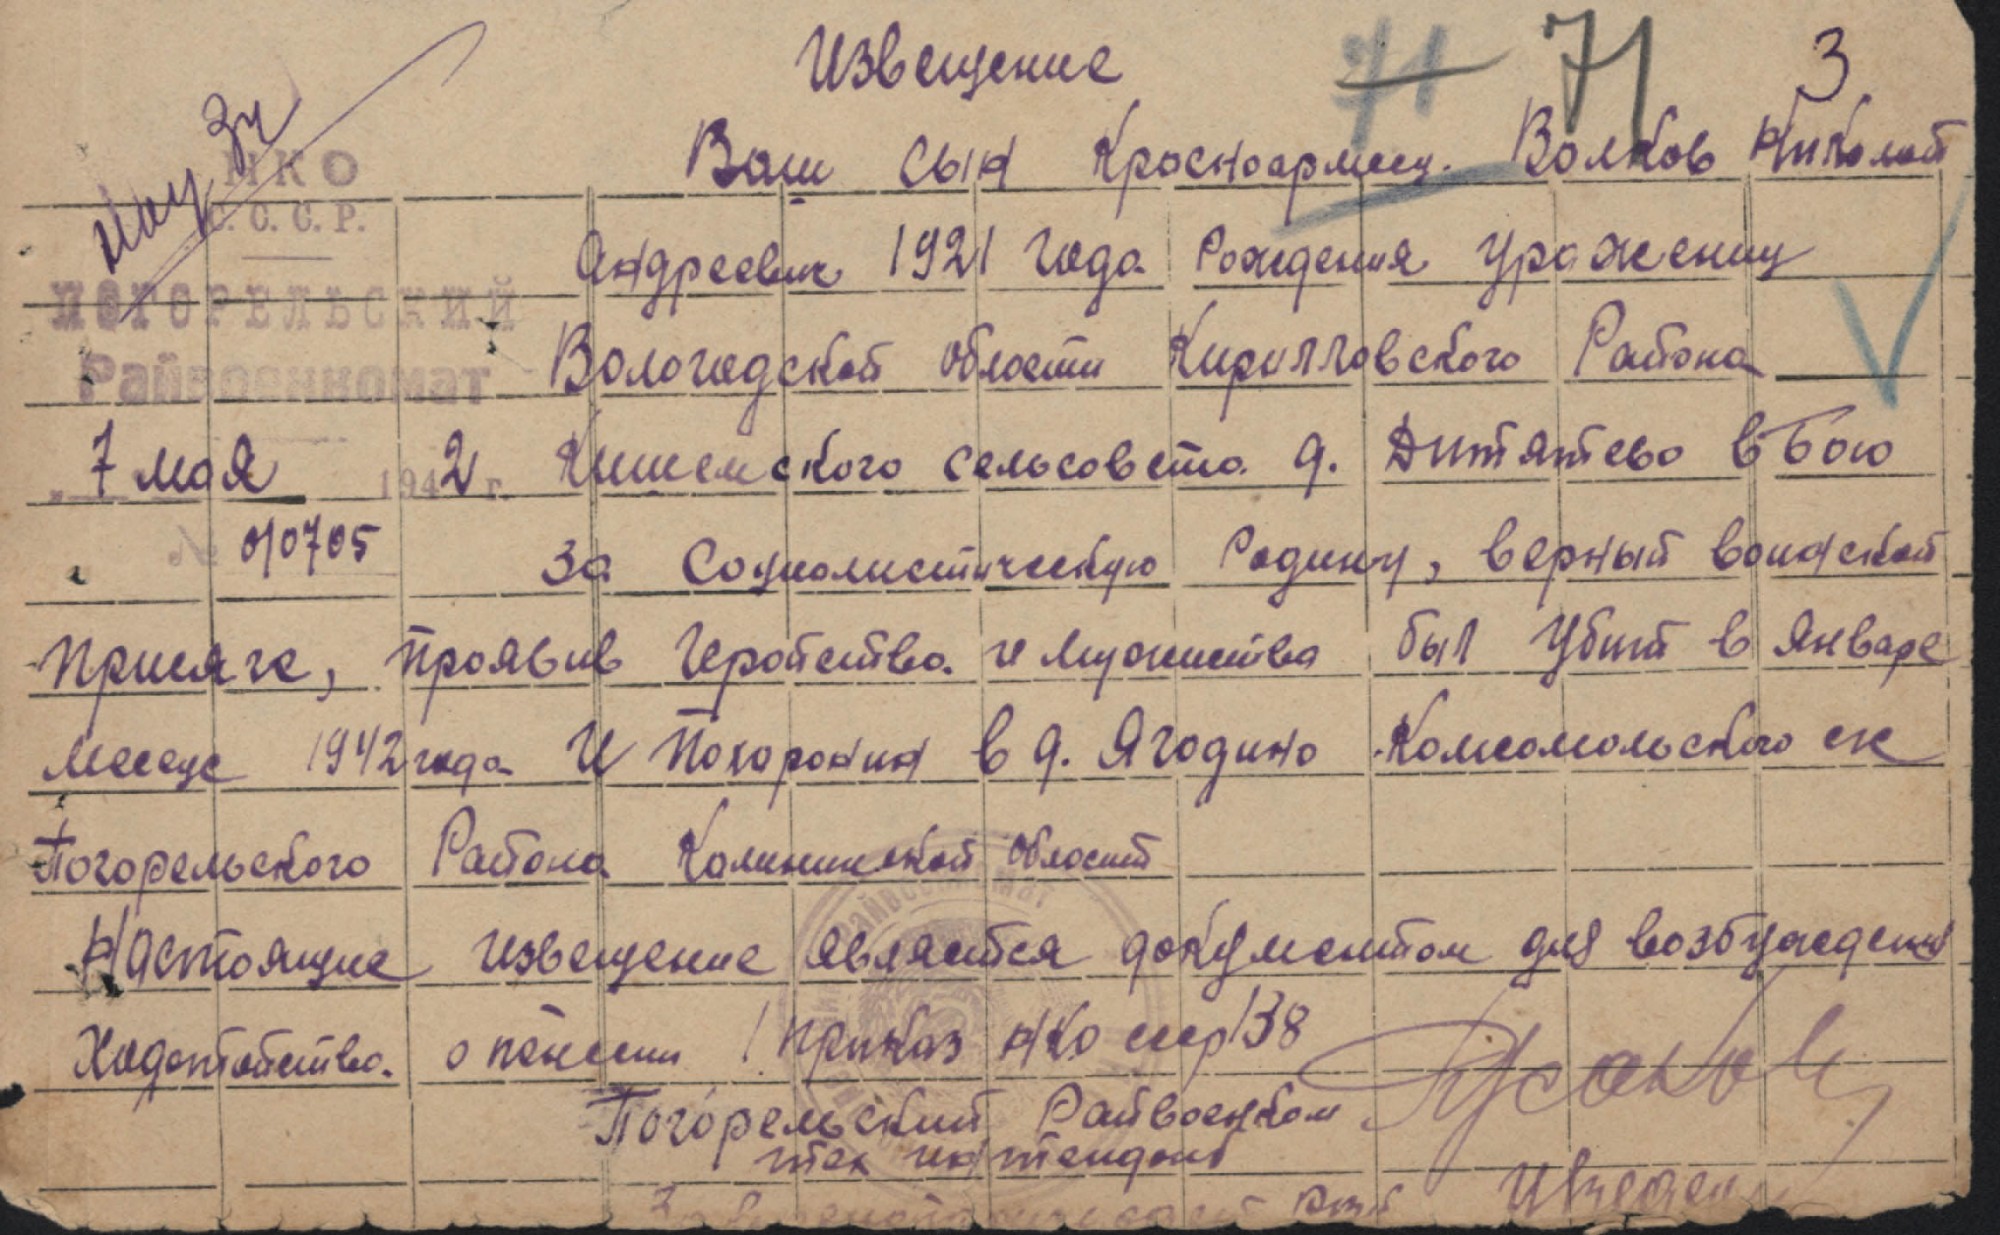 Извещение
71 71 3
Ваш сын Красноармеец. Волков Николай
НКО
С.С.С.Р.
Андреевич 1921 года Рождения Уроженец
ПОГОРЕЛЬСКИЙ
Вологодской области Кирилловского Района
Райвоенкомат
7 мая 1942 г. сельсовета д. Дитятево в бою
№ 0/0705
За Социалистическую Родину, верный воинской
Присяге, Проявив Геройство и Мужиство был Убит в Январе
Месеце 1942 года И Похоронин в д. Ягодино Комсомольского с/с
Погорельского Района Калининской области
Настоящие извещение является документом для возбуждения
Ходотойство о пенсии Приказ НКО ссср 138
Погорельский Райвоенком Русаков
тех интендант